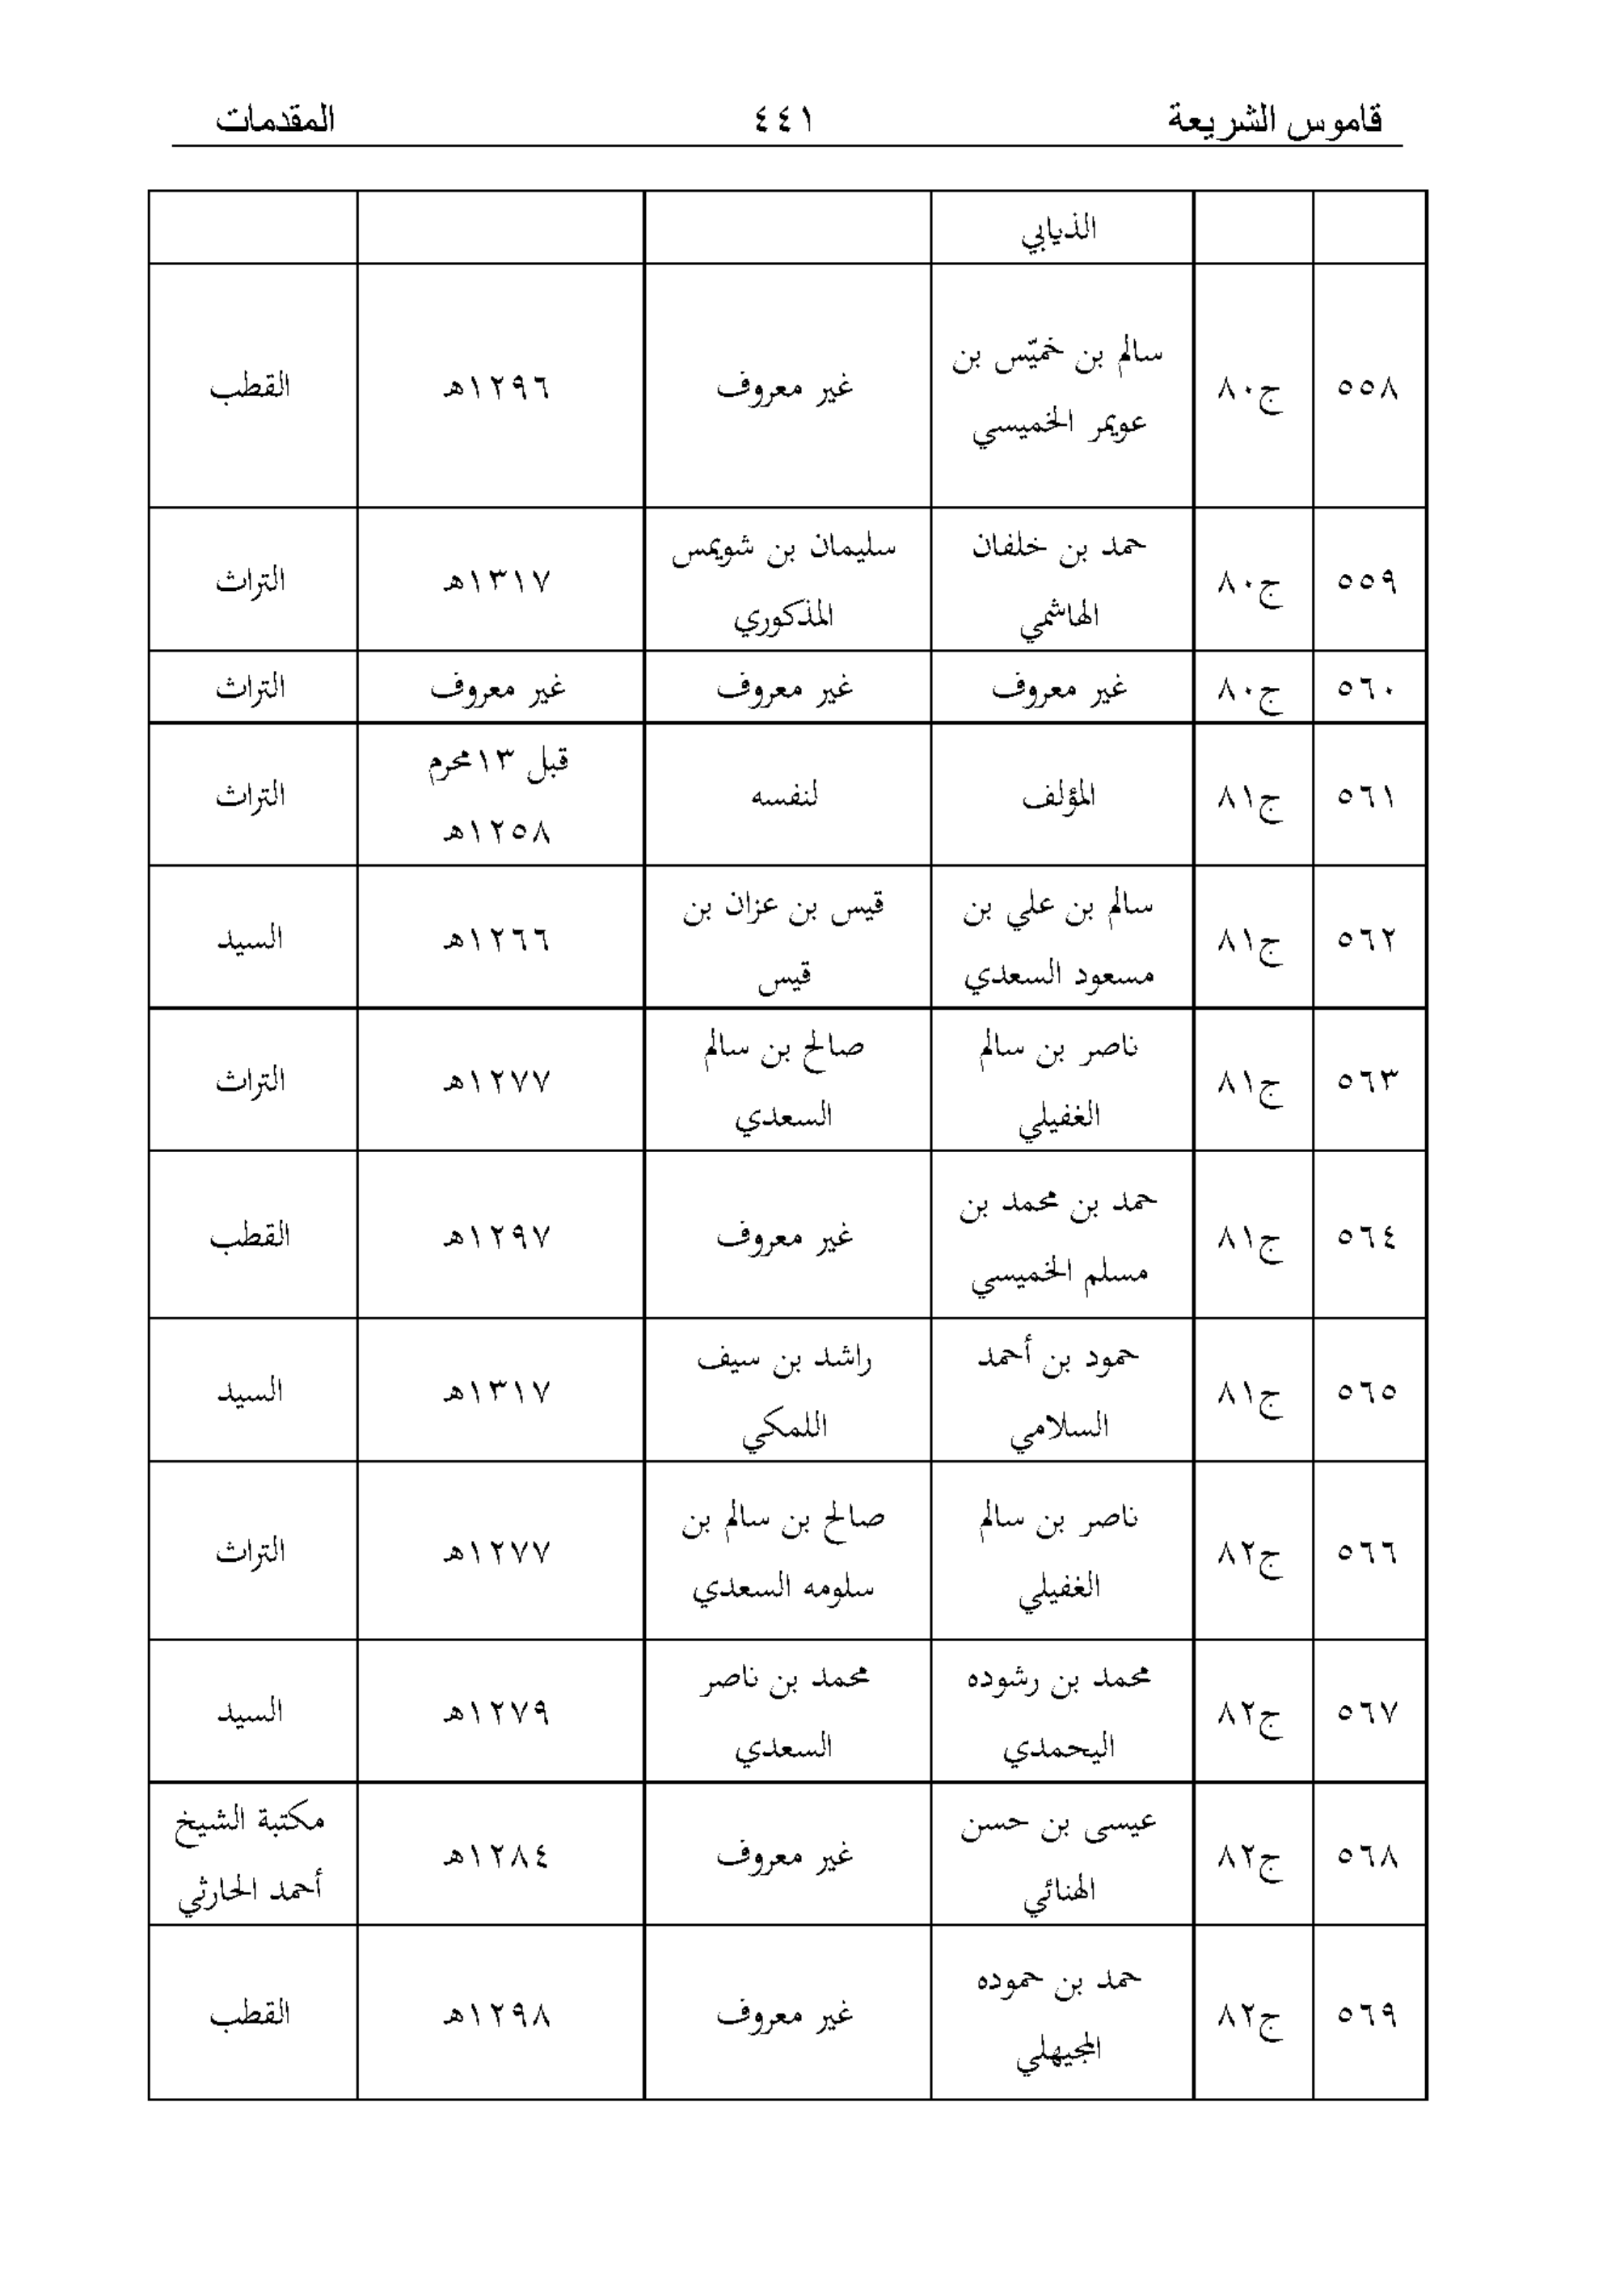 قاموس الشريعة ٤٤١ المقدمات
الذيابي
٥٥٨ ج٨٠ سالم بن خميّس بن عويمر الخميسي غير معروف ١٢٩٦هـ القطب
٥٥٩ ج٨٠ حمد بن خلفان الهاشمي سليمان بن شويمس المذكوري ١٣١٧هـ التراث
٥٦٠ ج٨٠ غير معروف غير معروف غير معروف التراث
٥٦١ ج٨١ المؤلف لنفسه قبل ١٣محرم ١٢٥٨هـ التراث
٥٦٢ ج٨١ سالم بن علي بن مسعود السعدي قيس بن عزان بن قيس ١٢٦٦هـ السيد
٥٦٣ ج٨١ ناصر بن سالم الغفيلي صالح بن سالم السعدي ١٢٧٧هـ التراث
٥٦٤ ج٨١ حمد بن محمد بن مسلم الخميسي غير معروف ١٢٩٧هـ القطب
٥٦٥ ج٨١ حمود بن أحمد السلامي راشد بن سيف اللمكي ١٣١٧هـ السيد
٥٦٦ ج٨٢ ناصر بن سالم الغفيلي صالح بن سالم بن سلومه السعدي ١٢٧٧هـ التراث
٥٦٧ ج٨٢ محمد بن رشوده اليحمدي محمد بن ناصر السعدي ١٢٧٩هـ السيد
٥٦٨ ج٨٢ عيسى بن حسن الهنائي غير معروف ١٢٨٤هـ مكتبة الشيخ أحمد الحارثي
٥٦٩ ج٨٢ حمد بن حموده المجيهلي غير معروف ١٢٩٨هـ القطب